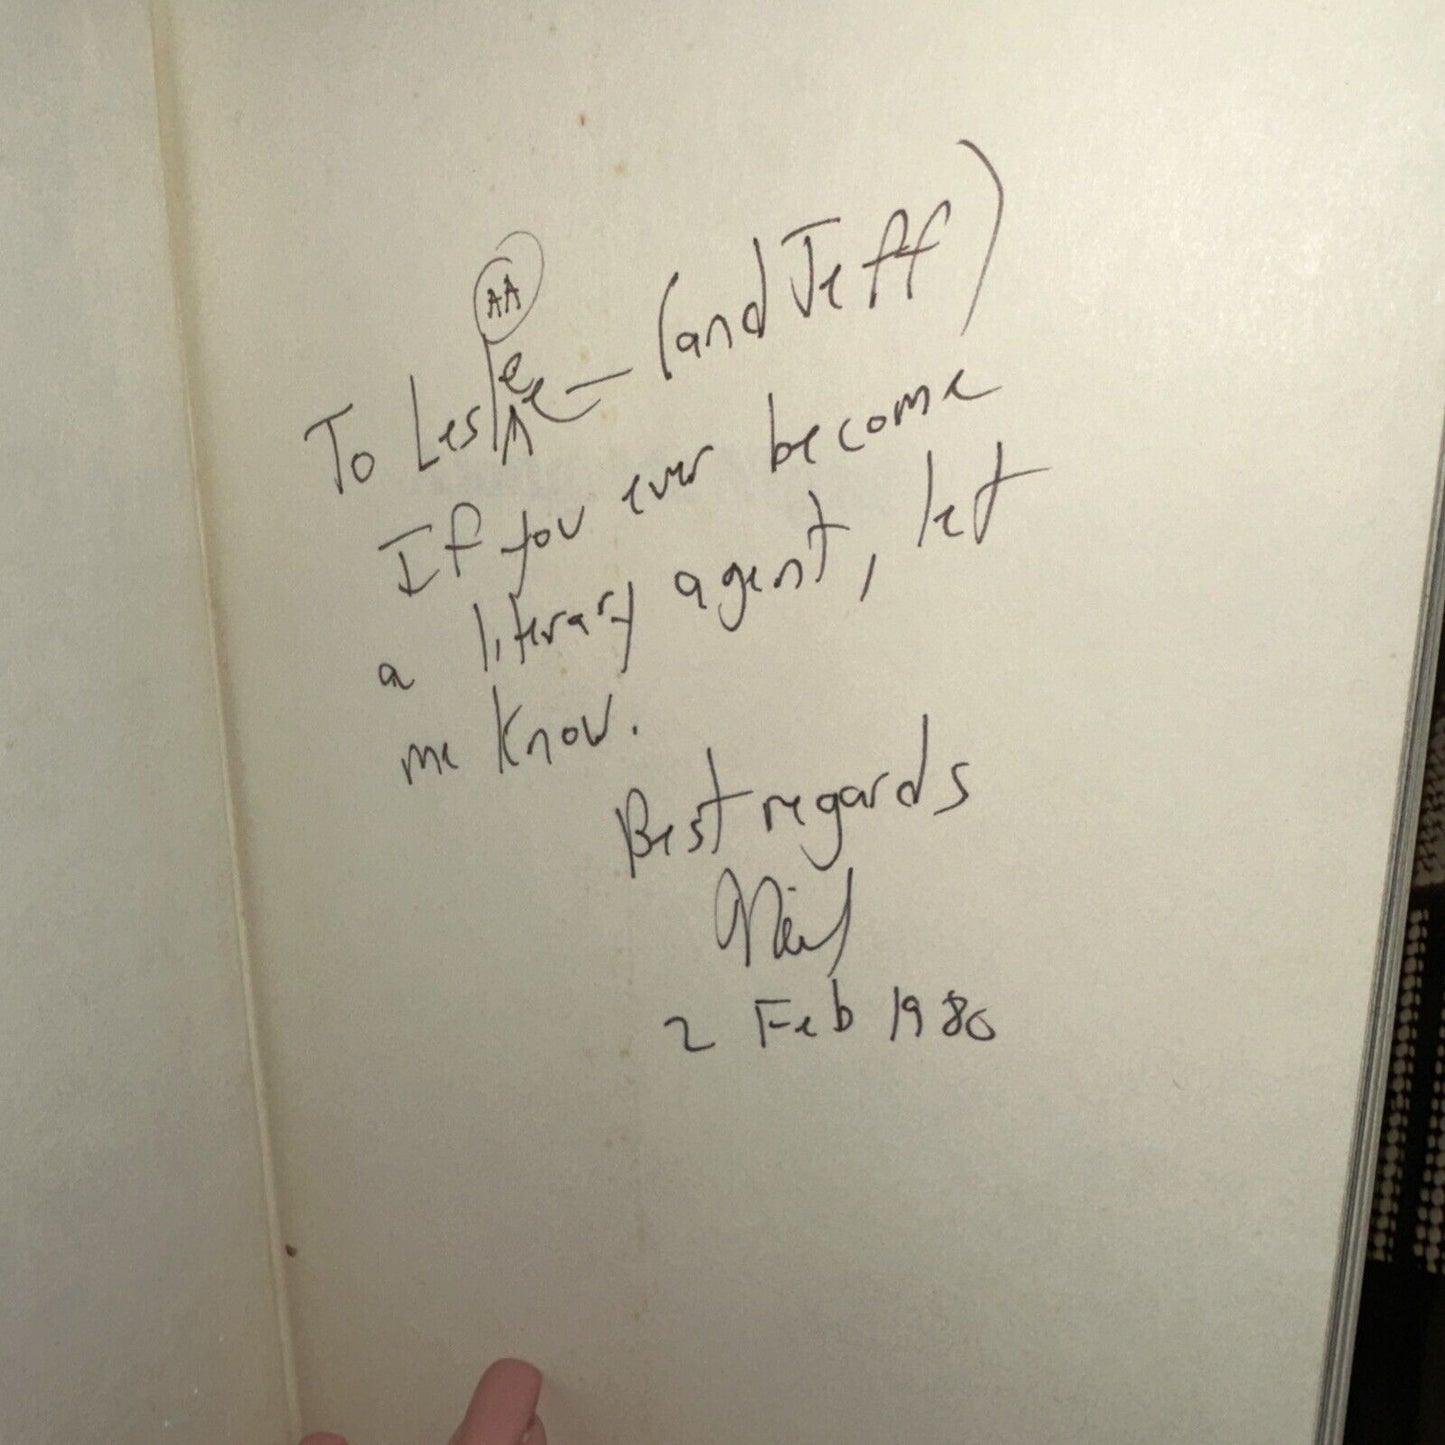 AA
To Leslee — (and Jeff)
If you ever become
a literary agent, let
me know.
Best regards
Neil
2 Feb 1980